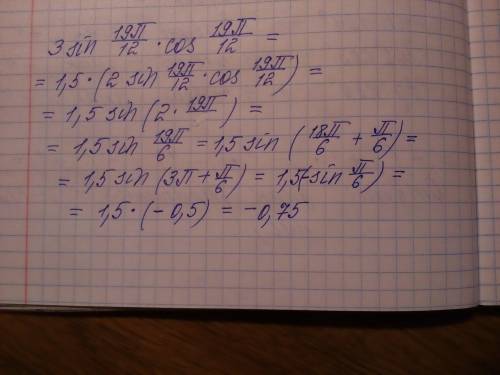 3 sin 19π/12 · cos 19π/12 =
= 1,5 · (2 sin 19π/12 · cos 19π/12) =
= 1,5 sin (2 · 19π/12) =
= 1,5 sin 19π/6 = 1,5 sin (18π/6 + π/6) =
= 1,5 sin (3π + π/6) = 1,5(-sin π/6) =
= 1,5 · (-0,5) = -0,75